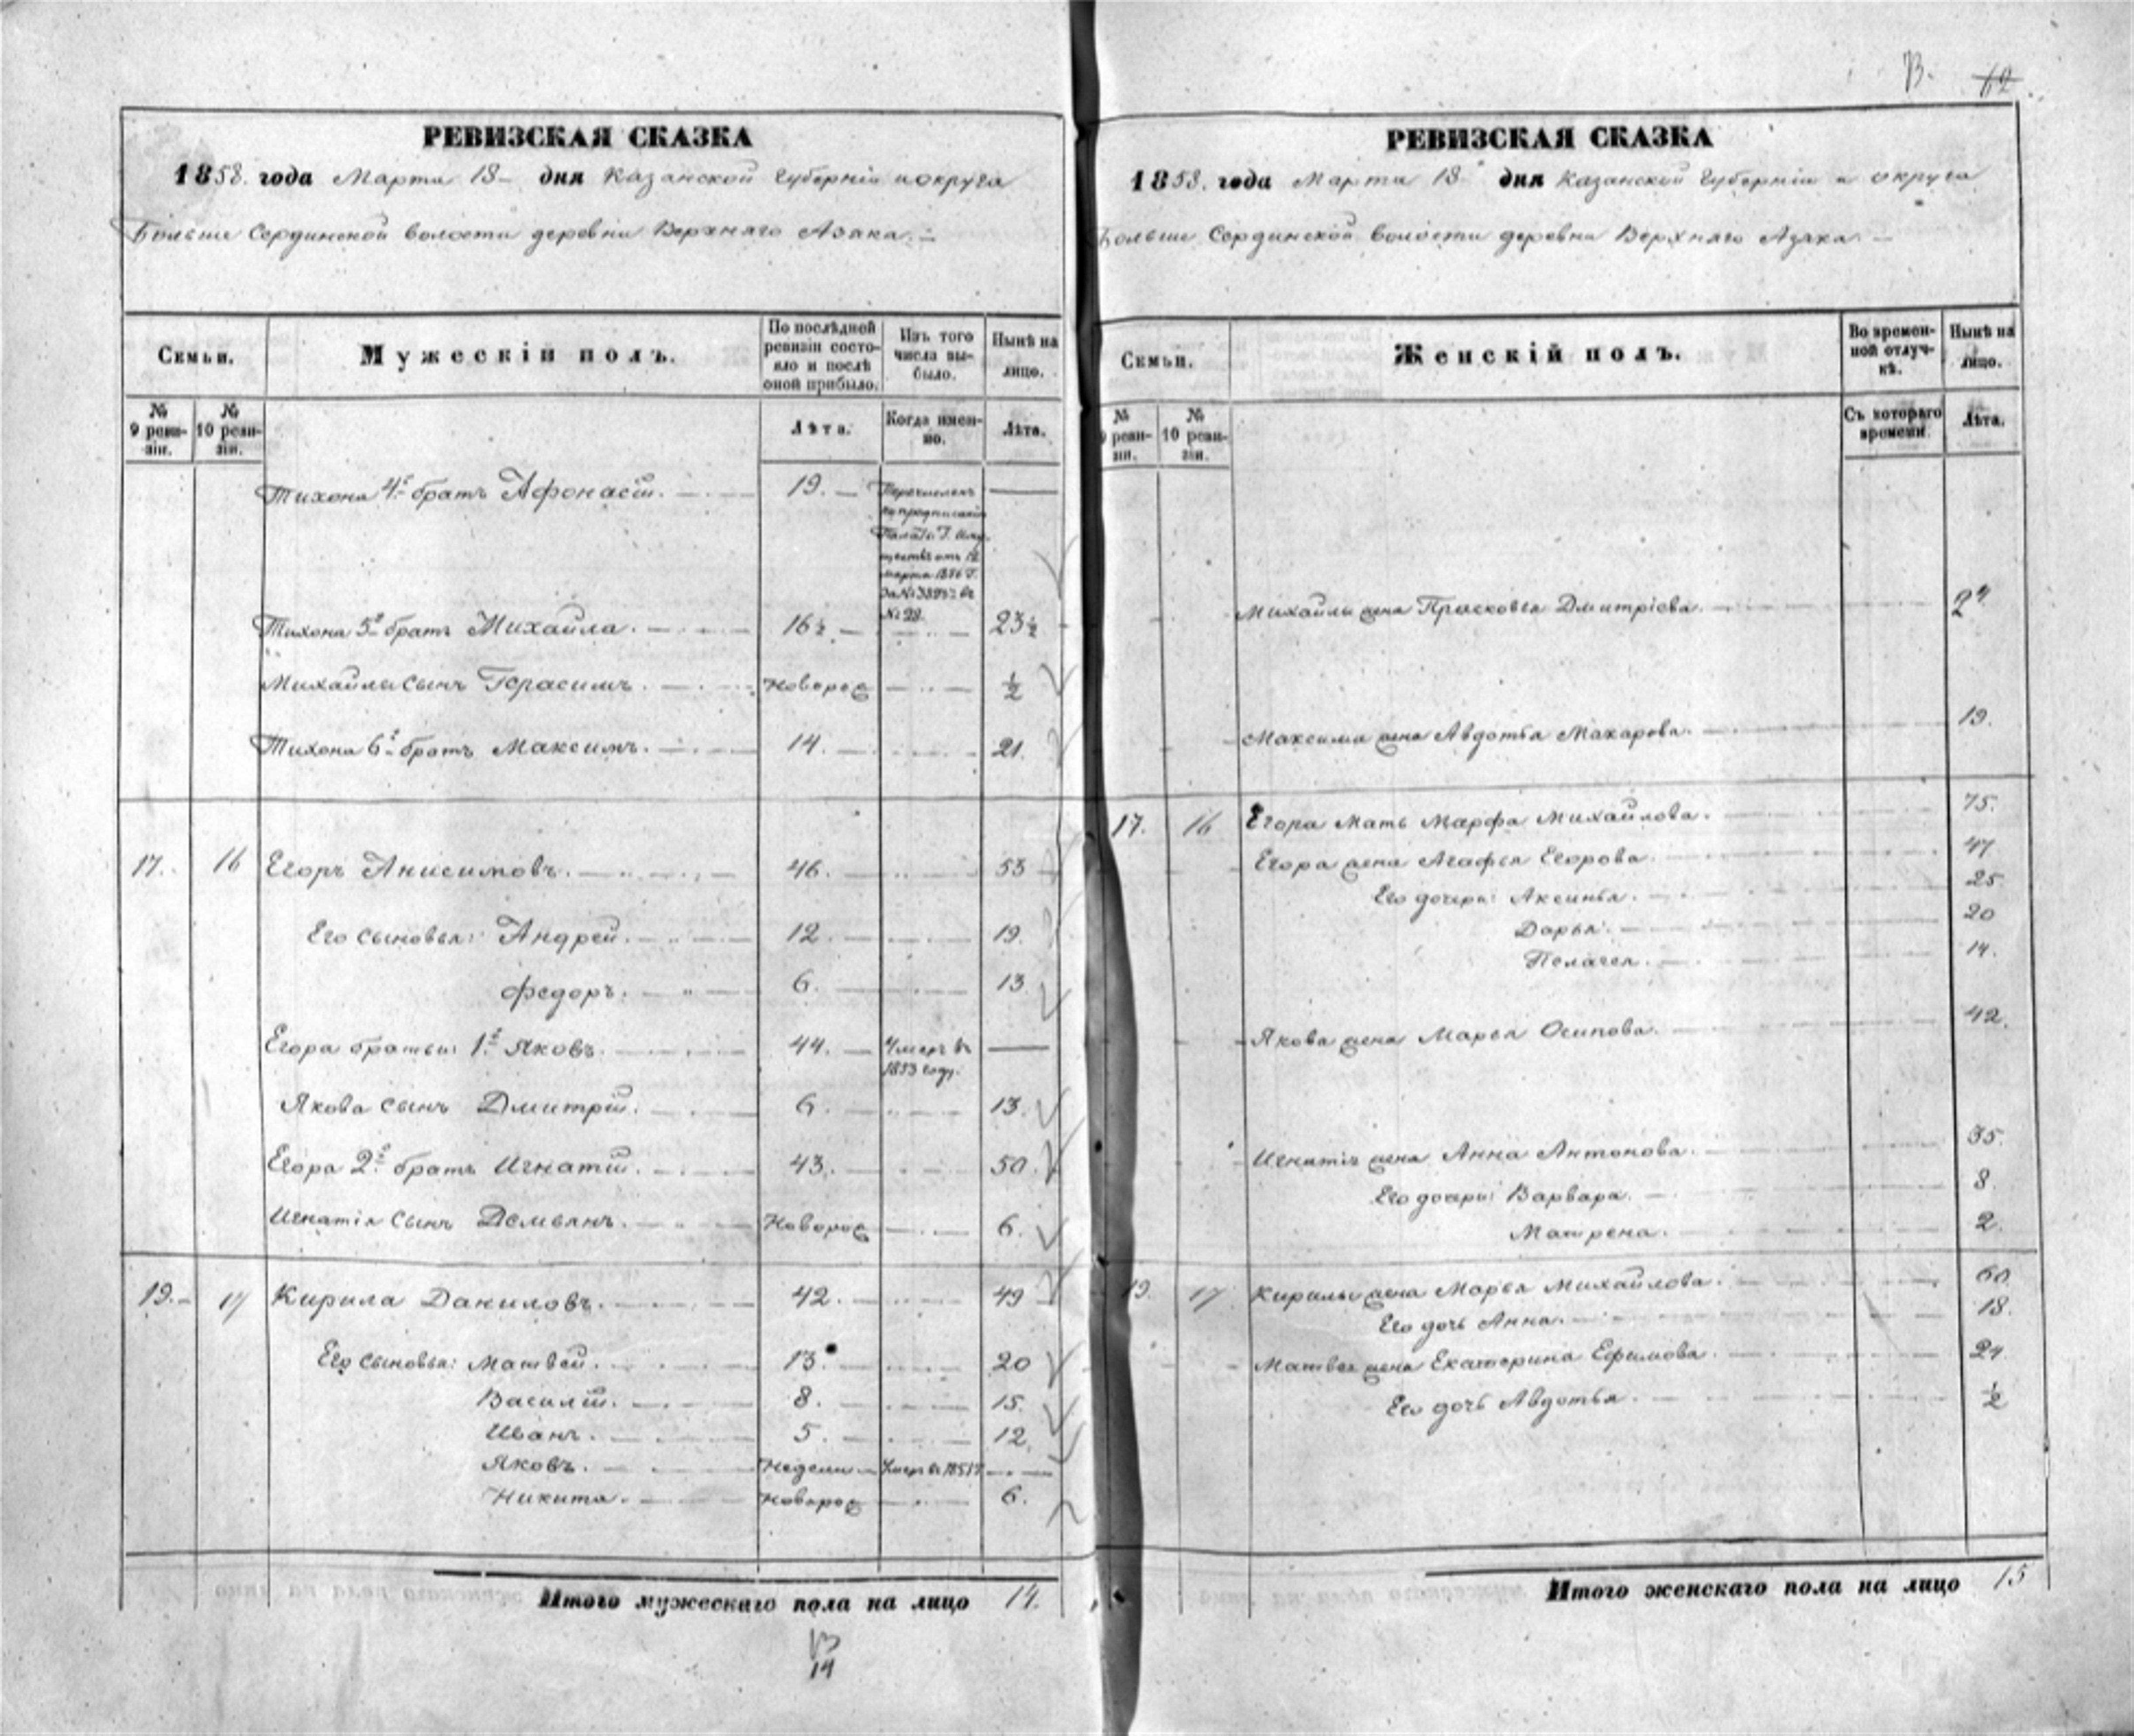 62
РЕВИЗСКАЯ СКАЗКА
1858. года Марта 18 дня Казанской Губерніи и округа
Больше Сердинской волости деревни Верхняго Азяка.
Семьи.
Мужескій полъ.
По послѣдней ревизіи состояло и послѣ оной прибыло.
Изъ того числа выбыло.
Нынѣ на лицо.
№ 9 ревизіи.
№ 10 ревизіи.
Лѣта.
Когда именно.
Лѣта.
Тихона 4й братъ Афонасій. 19.
Перечисленъ
по предписанію
Палаты Г. Иму
ществъ отъ 12
марта 1856 г.
За №
№ 22.
Тихона 5й братъ Михайла. 16½ 23½
Михайлы сынъ Герасимъ. Новорож ½
Тихона 6й братъ Максимъ. 14. 21.
17. 16 Егоръ Анисимовъ. 46. 53
Его сыновья: Андрей. 12. 19.
Федоръ. 6. 13
Егора братьи: 1й Яковъ. 44. Умеръ въ
1853 году.
Якова сынъ Дмитрій. 6. 13.
Егора 2й братъ Игнатій. 43. 50.
Игнатія сынъ Демьянъ. Новорож 6.
19. 17 Кирила Даниловъ. 42. 49
Его сыновья: Матвей. 13. 20
Василій. 8. 15.
Иванъ. 5. 12.
Яковъ. Недели Умеръ въ
Никита. Новорож 6.
Итого мужескаго пола на лицо 14.
14
РЕВИЗСКАЯ СКАЗКА
1858. года Марта 18 дня Казанской Губерніи и округа
Больше Сердинской волости деревни Верхняго Азяка.
Семьи.
Женскій полъ.
Во временной отлучкѣ.
Нынѣ на лицо.
№ 9 ревизіи.
№ 10 ревизіи.
Съ котораго времени.
Лѣта.
Михайлы жена Прасковья Дмитріева. 24
Максима жена Авдотья Макарова. 19.
17. 16 Егора мать Марфа Михайлова. 75.
Егора жена Агафья Егорова. 47
Его дочери: Аксинья. 25
Дарья. 20
Пелагея. 14.
Якова жена Марья Осипова. 42.
Игнатія жена Анна Антонова. 35.
Его дочери: Варвара. 8.
Матрена. 2.
19. 17 Кирилы жена Марья Михайлова. 60.
Его дочь Анна. 18.
Матвея жена Екатерина Ефимова. 24
Его дочь Авдотья. ½
Итого женскаго пола на лицо 15